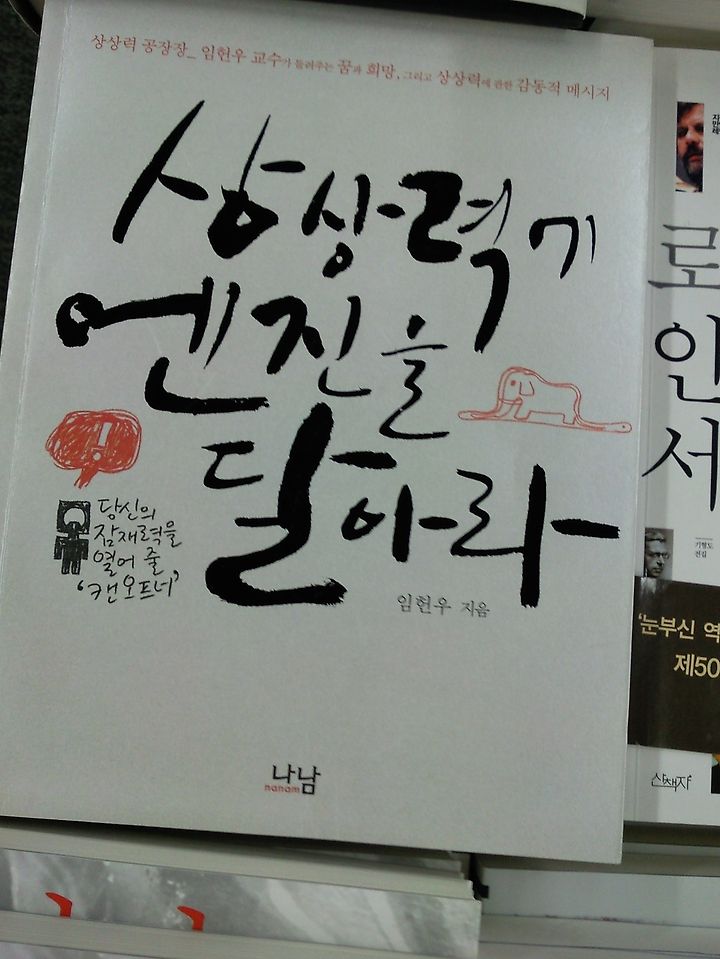 상상력 공장장_ 임헌우 교수가 들려주는 꿈과 희망, 그리고 상상력에 관한 감동적 메시지
상상력에
엔진을
달아라
당신의
잠재력을
열어 줄
‘캔 오프너’
임헌우 지음
나남
nanam
로
인
서
‘눈부신 역
제50
산책자